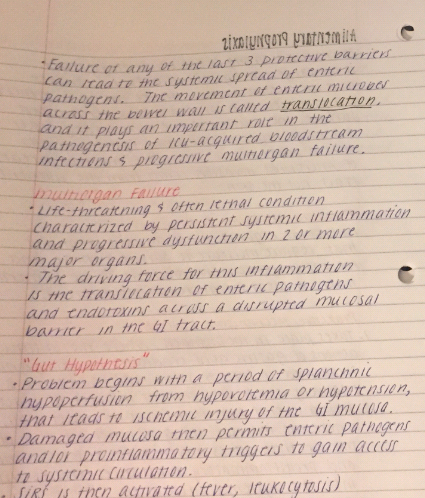 Alimentary Prophylaxis
• Failure of any of the last 3 protective barriers
can lead to the systemic spread of enteric
pathogens. The movement of enteric microbes
across the bowel wall is called translocation,
and it plays an important role in the
pathogenesis of ICU-acquired bloodstream
infections & progressive multiorgan failure.
Multiorgan Failure
• Life-threatening & often lethal condition
characterized by persistent systemic inflammation
and progressive dysfunction in 2 or more
major organs.
• The driving force for this inflammation
is the translocation of enteric pathogens
and endotoxins across a disrupted mucosal
barrier in the GI tract.
"Gut Hypothesis"
• Problem begins with a period of splanchnic
hypoperfusion from hypovolemia or hypotension,
that leads to ischemic injury of the GI mucosa.
• Damaged mucosa then permits enteric pathogens
and/or proinflammatory triggers to gain access
to systemic circulation.
• SIRS is then activated (fever, leukocytosis)